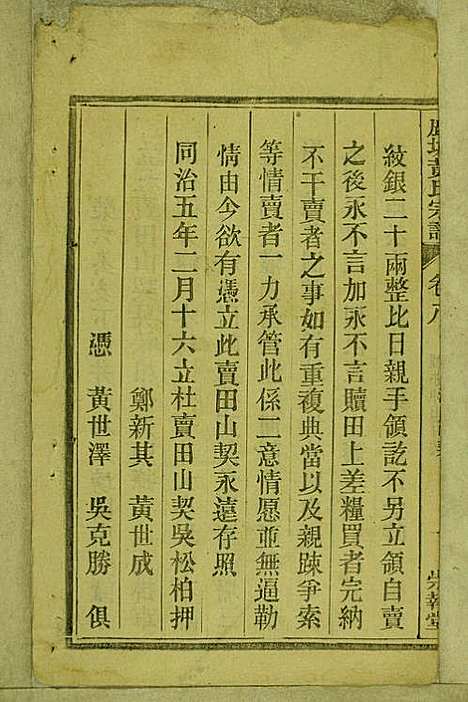 黃氏宗譜
卷八
紋銀二十兩整比日親手領訖不另立領自賣
之後永不言加永不言贖田上差糧買者完納
不干賣者之事如有重複典當以及親踈爭索
等情賣者一力承管此係二意情愿並無逼勒
情由今欲有憑立此賣田山契永遠存照
同治五年二月十六立杜賣田山契吳松柏押
鄭新其 黃世成
憑 黃世澤 吳克勝 俱